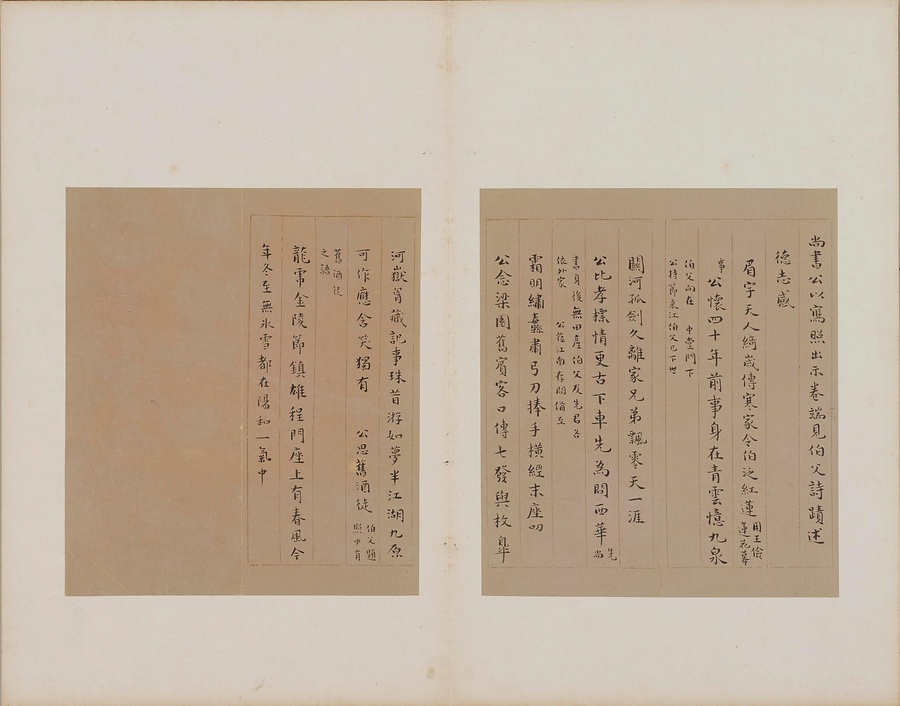 尚書公以寫照出示卷端見伯父詩蹟述
德志感
眉宇天人綺歲傳寒家令伯泛紅蓮 用王儉蓮花幕
事 公懷四十年前事身在青雲憶九泉
伯父向在 中堂門下
公持節來江伯父已下世
關河孤劍久離家兄弟飄零天一涯
公比孝標情更古下車先為問西華 先尚
書身後無田產伯父及先君各
依外家 公蒞江南存問備至
霜明繡纛肅弓刀捧手橫經末座叨
公念梁園舊賓客口傳七發與枚皋
河嶽胷藏記事珠昔游如夢半江湖九原
可作應含笑獨有 公思舊酒徒 伯父題照中有
舊酒徒
之語
龍需金陵節鎮雄程門座上有春風今
年冬至無冰雪都在陽和一氣中